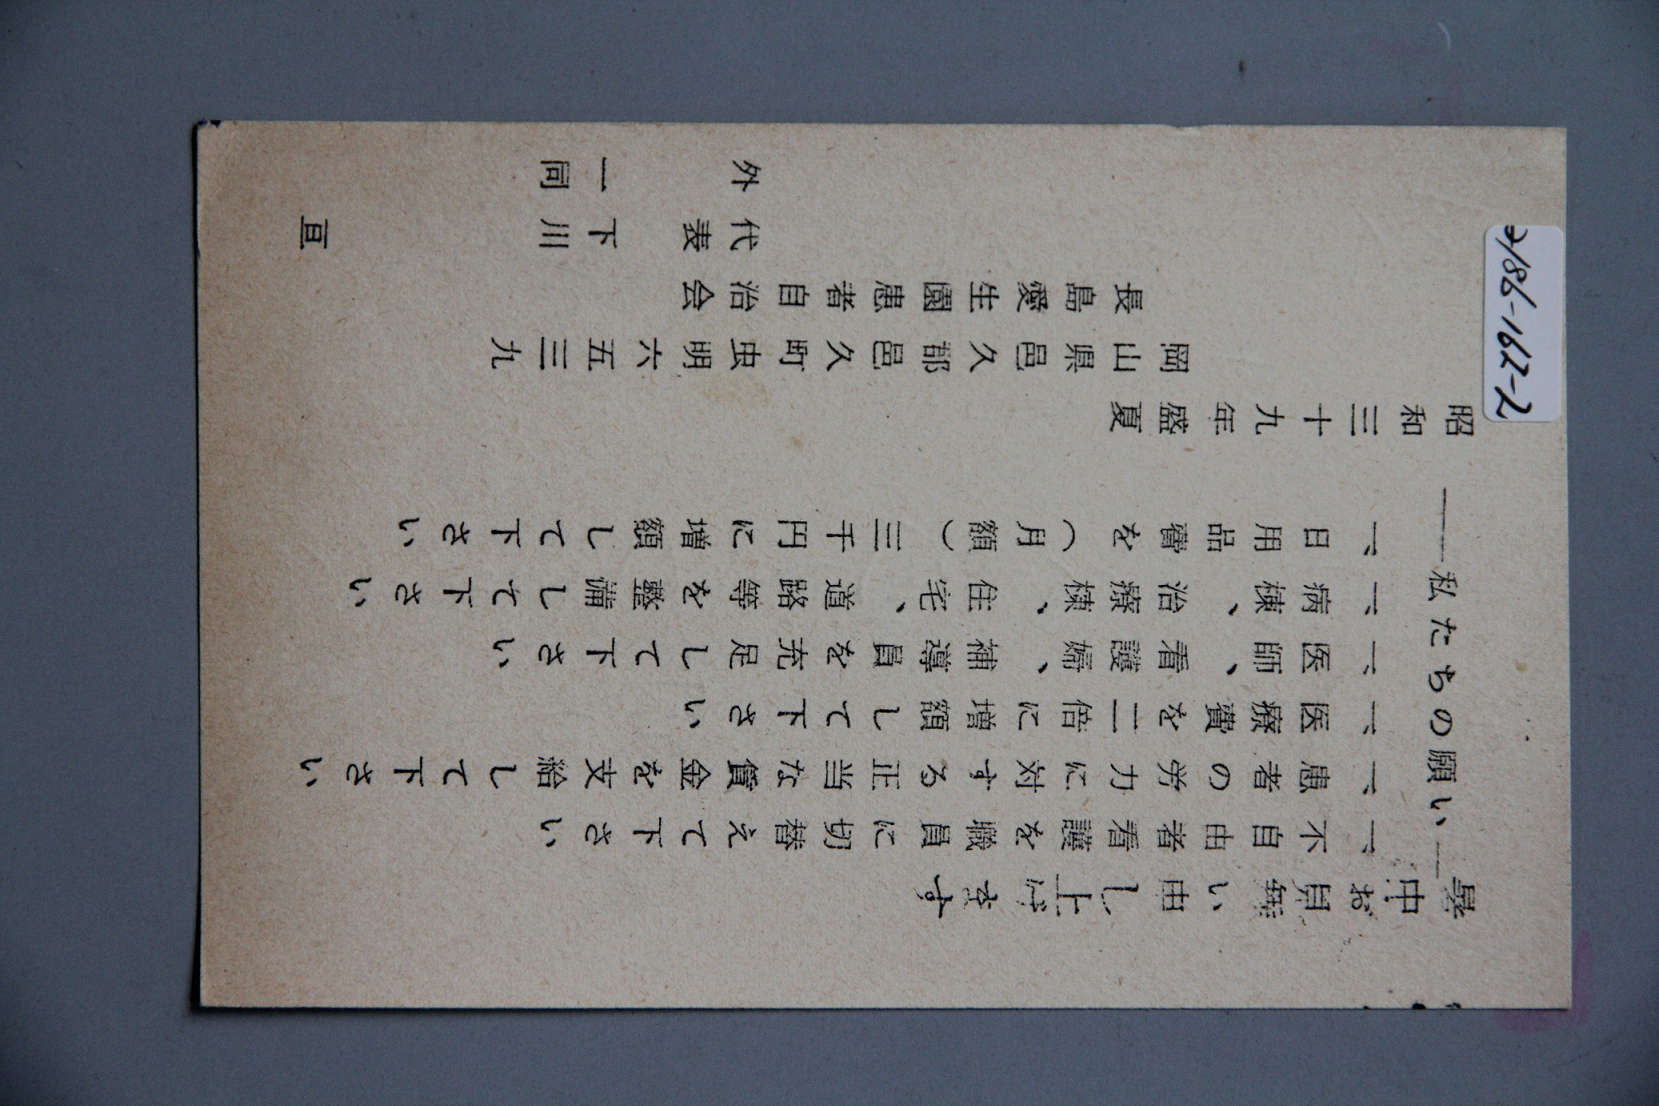 暑中お見舞い申し上げます
――私たちの願い――
一、不自由者看護を職員に切替えて下さい
一、患者の労力に対する正当な賃金を支給して下さい
一、医療費を二倍に増額して下さい
一、医師、看護婦、補導員を充足して下さい
一、病棟、治療棟、住宅、道路等を整備して下さい
一、日用品費を(月額)三千円に増額して下さい
昭和三十九年盛夏
岡山県邑久郡邑久町虫明六五三九
長島愛生園患者自治会
代表 下川 亘
外 一同
4186-162-2